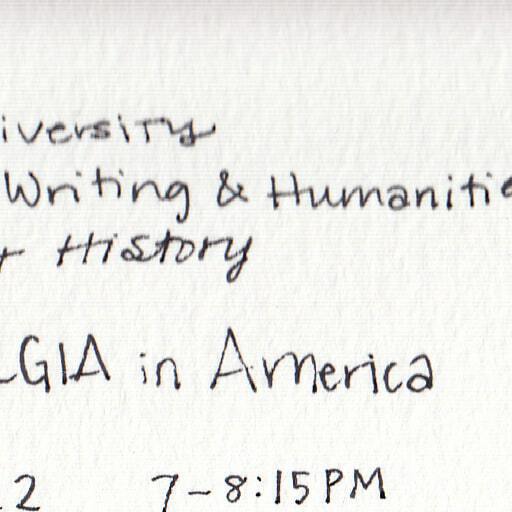 iversity
Writing & Humanitie
t History
LGIA in America
2 7-8:15PM